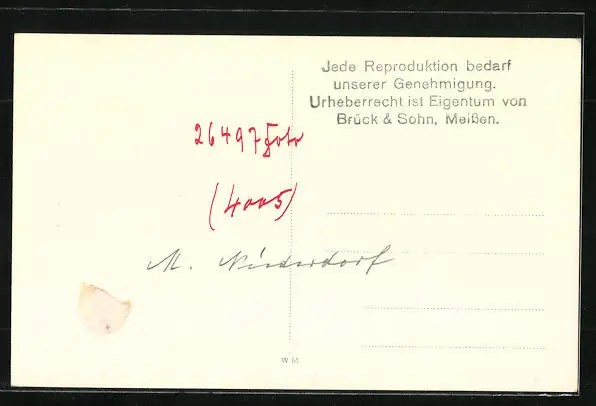 Jede Reproduktion bedarf
unserer Genehmigung.
Urheberrecht ist Eigentum von
Brück & Sohn, Meißen.
26497 Foto
(4005)
M. Niederdorf
W M